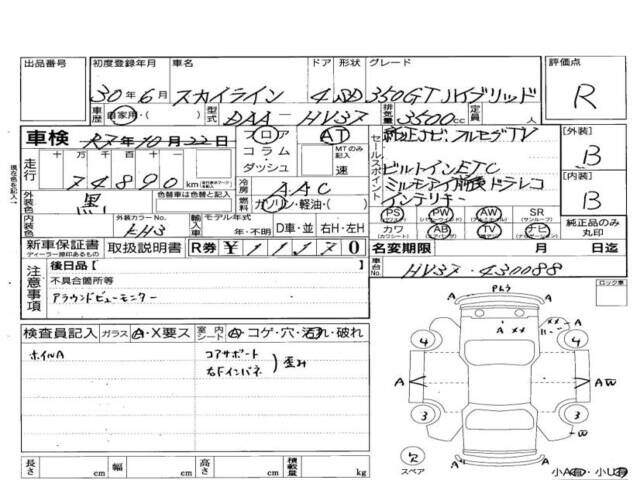 出品番号 初度登録年月 車名 ドア 形状 グレード 評価点
30年6月 スカイライン 4WD 350GTハイブリッド R
車歴 自家用・( ) 型式 DAA-HV37 排気量 3500cc 定員 人
車検 R7年10月22日 フロア AT 純正ナビ・フルセグTV [外装]
走行 十万 万 千 百 十 一 コラム MTのみ記入 セールスポイント B
74890 km ダッシュ 速 ビルトインETC [内装]
外装色 黒 色替車は色替と記入 冷房 AAC ミルモアイ前後ドラレコ B
燃料 ガソリン・軽油・( ) インテリキー
内装色 外装カラーNo. KH3 輸入車 モデル年式 PS PW AW SR 純正品のみ丸印
年・不明 D車・並 右H・左H カワ AB TV ナビ
新車保証書 取扱説明書 R券 ¥11170 名変期限 月 日迄
ディーラー捺印あるもの
注意事項 後日品[ 車台No. HV37-430088
不具合箇所等 ロック車
アラウンドビューモニター
検査員記入 ガラス A・X要ス 室内シート A・コゲ・穴・汚れ・破れ
ホイルA コアサポート
右Fインパネ 歪み
A
4 4
A A AW
3 3
スペア A
長さ cm 幅 cm 高さ cm 積載量 kg 小A有・小U有
現在色を記入